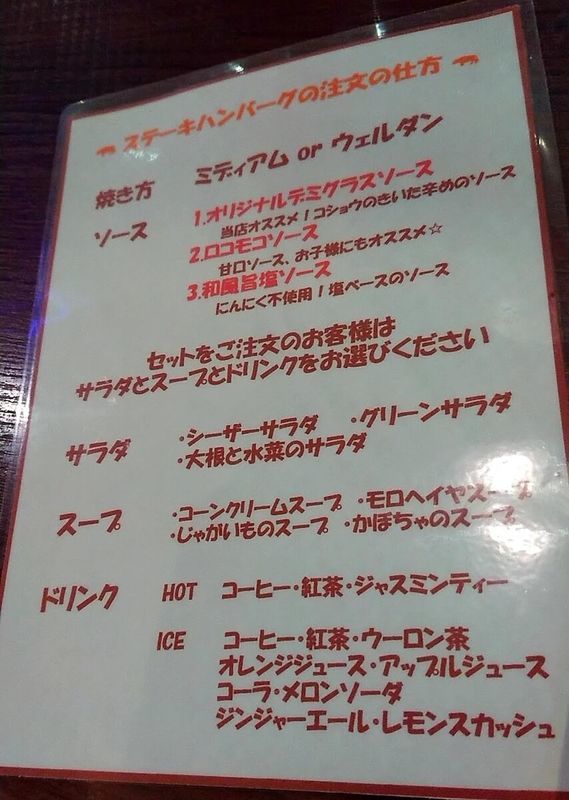 ステーキハンバーグの注文の仕方
焼き方 ミディアム or ウェルダン
ソース 1.オリジナルデミグラスソース
当店オススメ!コショウのきいた辛めのソース
2.ロコモコソース
甘口ソース、お子様にもオススメ☆
3.和風旨塩ソース
にんにく不使用!塩ベースのソース
セットをご注文のお客様は
サラダとスープとドリンクをお選びください
サラダ ・シーザーサラダ ・グリーンサラダ
・大根と水菜のサラダ
スープ ・コーンクリームスープ ・モロヘイヤスープ
・じゃがいものスープ ・かぼちゃのスープ
ドリンク HOT コーヒー・紅茶・ジャスミンティー
ICE コーヒー・紅茶・ウーロン茶
オレンジジュース・アップルジュース
コーラ・メロンソーダ
ジンジャーエール・レモンスカッシュ